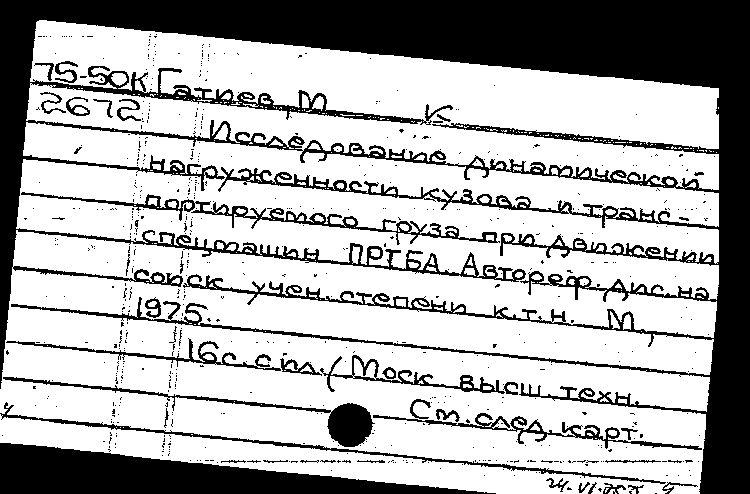 75-50К Гатиев, М К
2672
Исследование динамической
нагруженности кузова и транс-
портируемого груза при движении
спецмашин ПРТБА. Автореф. дис. на
соиск учен. степени к.т.н. М.,
1975.
16с. с ил. (Моск высш. техн.
См. след. карт.